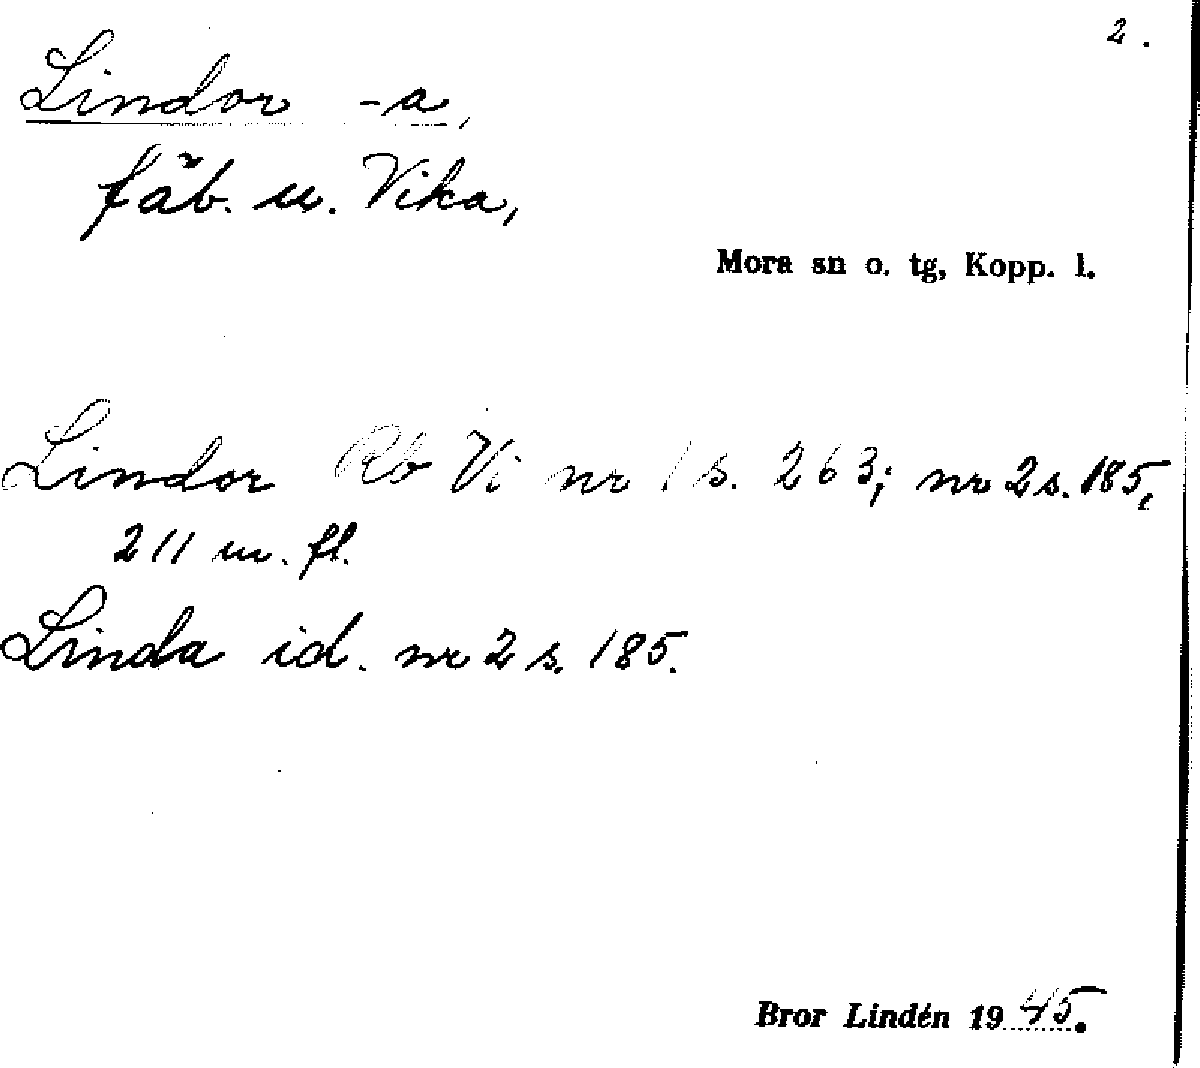 2.
Lindor -a,
fäb. u. Vika,
Mora sn o. tg, Kopp. l.
Lindor Rb Vi nr 1 s. 263; nr 2 s. 185,
211 m. fl.
Linda id. nr 2 s. 185.
Bror Lindén 1945.